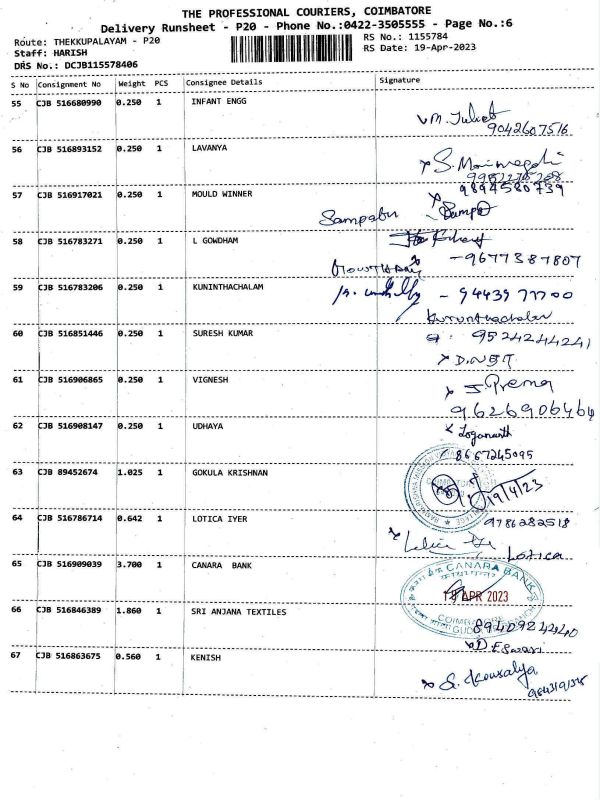 THE PROFESSIONAL COURIERS, COIMBATORE
Delivery Runsheet - P20 - Phone No.:0422-3505555 - Page No.:6
Route: THEKKUPALAYAM - P20
RS No.: 1155784
Staff: HARISH
RS Date: 19-Apr-2023
DRS No.: DCJB115578406
S No Consignment No Weight PCS Consignee Details Signature
55 CJB 516680990 0.250 1 INFANT ENGG
9042607516
56 CJB 516893152 0.250 1 LAVANYA
57 CJB 516917021 0.250 1 MOULD WINNER
9894580739
58 CJB 516783271 0.250 1 L GOWDHAM
- 9677387807
59 CJB 516783206 0.250 1 KUNINTHACHALAM
60 CJB 516851446 0.250 1 SURESH KUMAR
9524244241
61 CJB 516906865 0.250 1 VIGNESH
J. Prema
9626906464
62 CJB 516908147 0.250 1 UDHAYA
Loganath
8667245095
63 CJB 89452674 1.025 1 GOKULA KRISHNAN
19/4/23
64 CJB 516786714 0.642 1 LOTICA IYER
9786282518
LOTICA
65 CJB 516909039 3.700 1 CANARA BANK
CANARA BANK
APR 2023
66 CJB 516846389 1.860 1 SRI ANJANA TEXTILES
8940924440
67 CJB 516863675 0.560 1 KENISH
S. Kowsalya